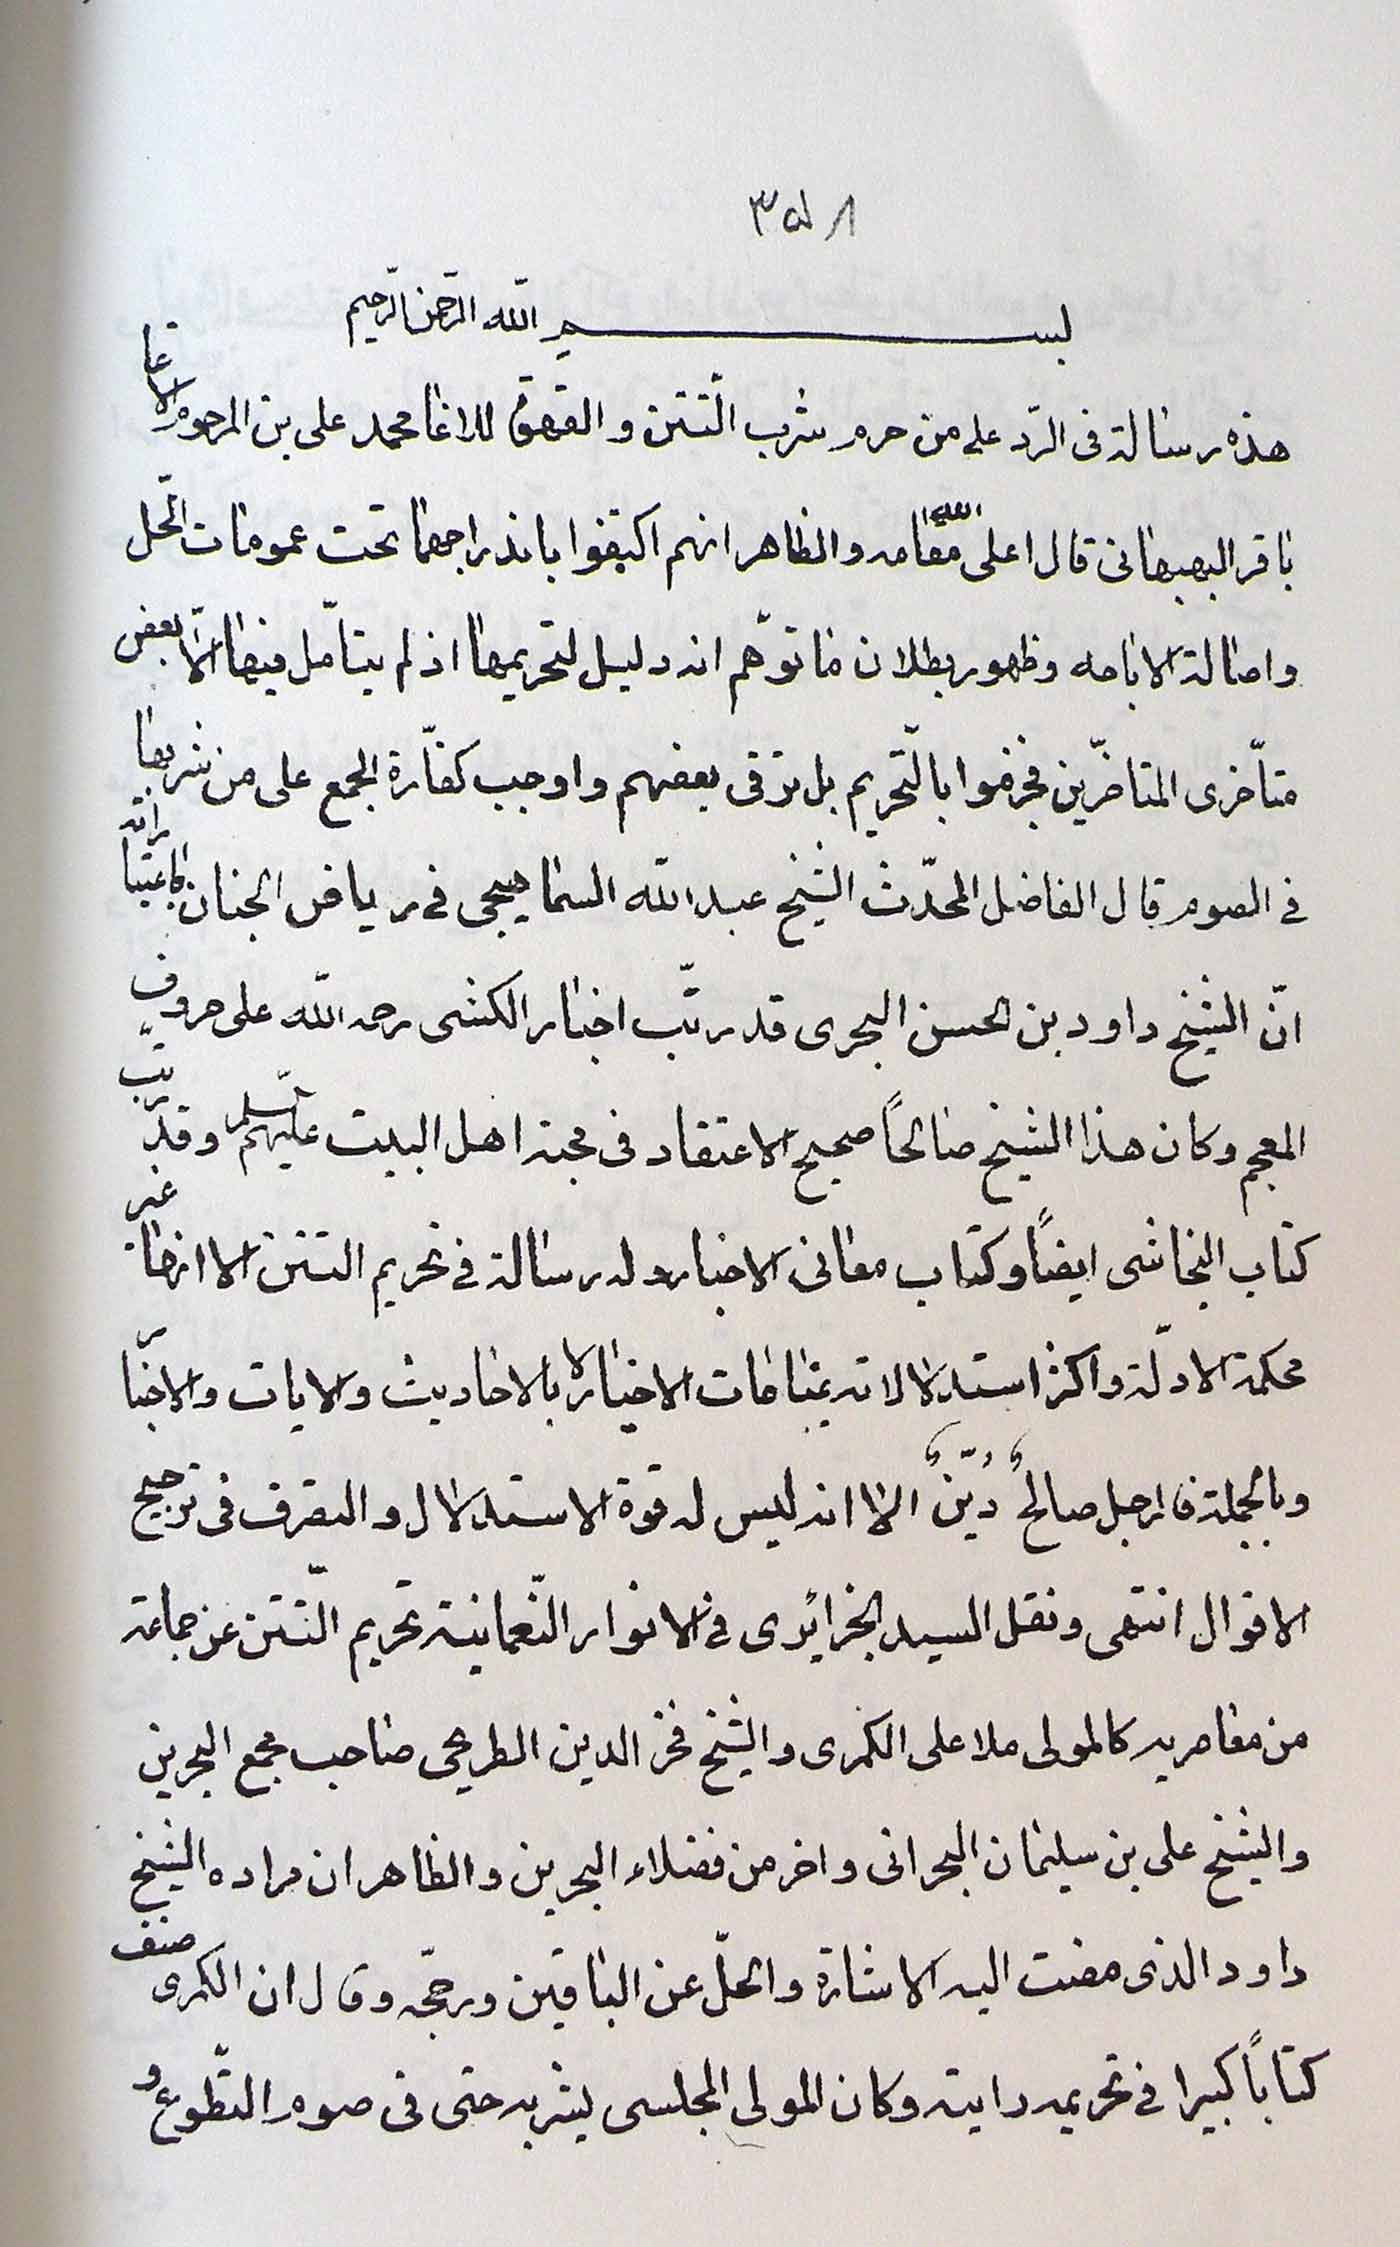 ٣٥٨
بسم الله الرحمن الرحيم
هذه رسالة فى الرّد على من حرم شرب التّتن و القهوة للاغا محمد على بن المرحوم الاغا
باقر البهبهانى قال اعلى الله مقامه و الظاهر انهم اكتفوا باندراجهما تحت عمومات الحّل
و اصالة الاباحه و ظهور بطلان ما توّهم انه دليل لتحريمها اذ لم يتأمّل فيها الاّ بعض
متأخّرى المتاخّرين فجزموا بالتّحريم بل ترقى بعضهم و اوجب كفّارة الجمع على من شربها
فى الصوم قال الفاضل المحدّث الشيخ عبد الله السماهيجى فى رياض الجنان بعد
انّ الشيخ داود بن الحسن البحرى قد رتّب اخبار الكشى رحمه الله على حروف
المعجم و كان هذا الشيخ صالحاً صحيح الاعتقاد فى محبة اهل البيت عليهم السلم و قد رتّب
كتاب النجاشى ايضاً و كتاب معانى الاخبار و له رسالة فى تحريم التتن الا انها غير
محكمة الادلّة و اكثر استدلالاته بمنامات الاخيار لا بالاحاديث و الايات و الاخبار
و بالجملة فالرجل صالحٌ ديّنٌ الا انه ليس له قوة الاستدلال و التصرف فى ترجيح
الاقوال انتهى و نقل السيد الجزائرى فى الانوار النّعمانية تحريم التّتن عن جماعة
من معاصريه كالمولى ملا على الكمرى و الشيخ فخر الدين الطريحى صاحب مجمع البحرين
و الشيخ على بن سليمان البحرانى و اخر من فضلاء البحرين و الظاهر ان مراده الشيخ
داود الذى مضت اليه الاشارة و الحلّ عن الباقين و رجّحه و قال ان الكمرى صنف
كتاباً كبيرا فى تحريمه رايته و كان المولى المجلسى يشربه حتى فى صوم التطّوع و